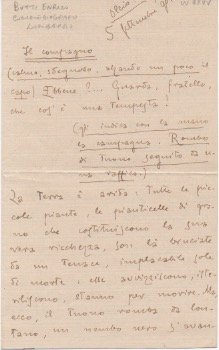 BUTTI ENRICO
LOMBARDO
5 settembre 9
Il compagno
(calmo, sdegnoso alzando un poco il
capo) Ebbene?... Guarda, fratello,
che cos'è una tempesta!
(gli indica con la mano
la campagna. Rombo
di tuono seguito da u-
na raffica.)
La terra è arida: tutte le pic-
cole piante, le pianticelle di gra-
no che costituiscono la sua
vera ricchezza, son là bruciate
da un tenace, implacabile sole
di morte, esse avvizziscono, iste-
riliscono, stanno per morire. Ma
ecco, il tuono romba da lon-
tano, un nembo nero s'avan-